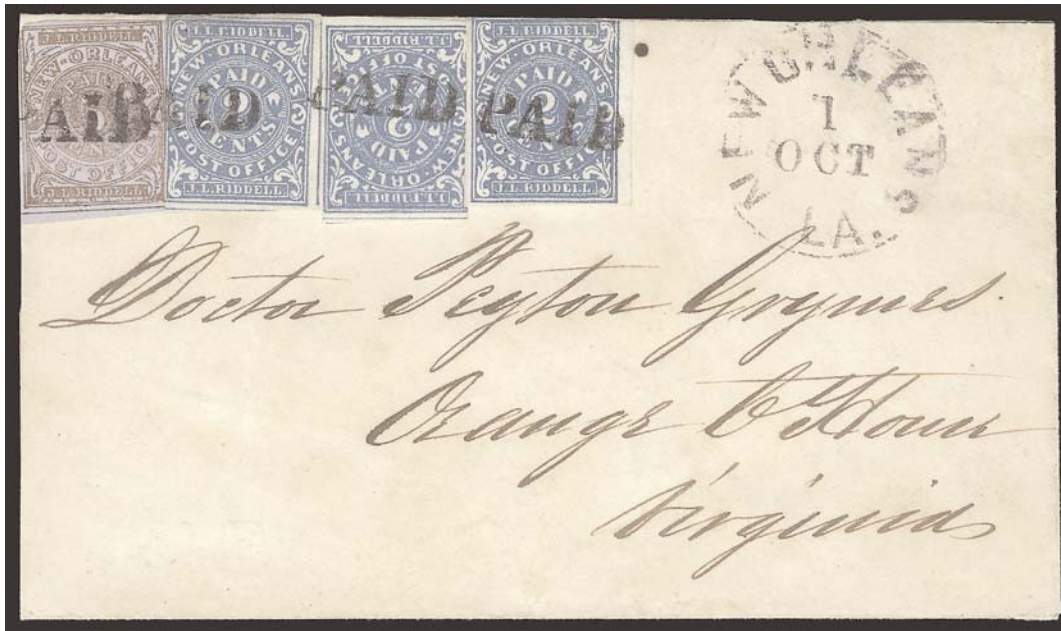 J.L.RIDDELL.
NEW-ORLEANS
PAID
POST OFFICE
J.L.RIDDELL.
PAID
J.L.RIDDELL.
NEW-ORLEANS
PAID
2
CENTS
POST OFFICE
J.L.RIDDELL.
PAID
J.L.RIDDELL.
NEW-ORLEANS
PAID
2
CENTS
POST OFFICE
J.L.RIDDELL.
PAID
J.L.RIDDELL.
NEW-ORLEANS
PAID
2
CENTS
POST OFFICE
J.L.RIDDELL.
PAID
NEW ORLEANS
1
OCT
LA.
Doctor Peyton Grymes.
Orange C House
Virginia